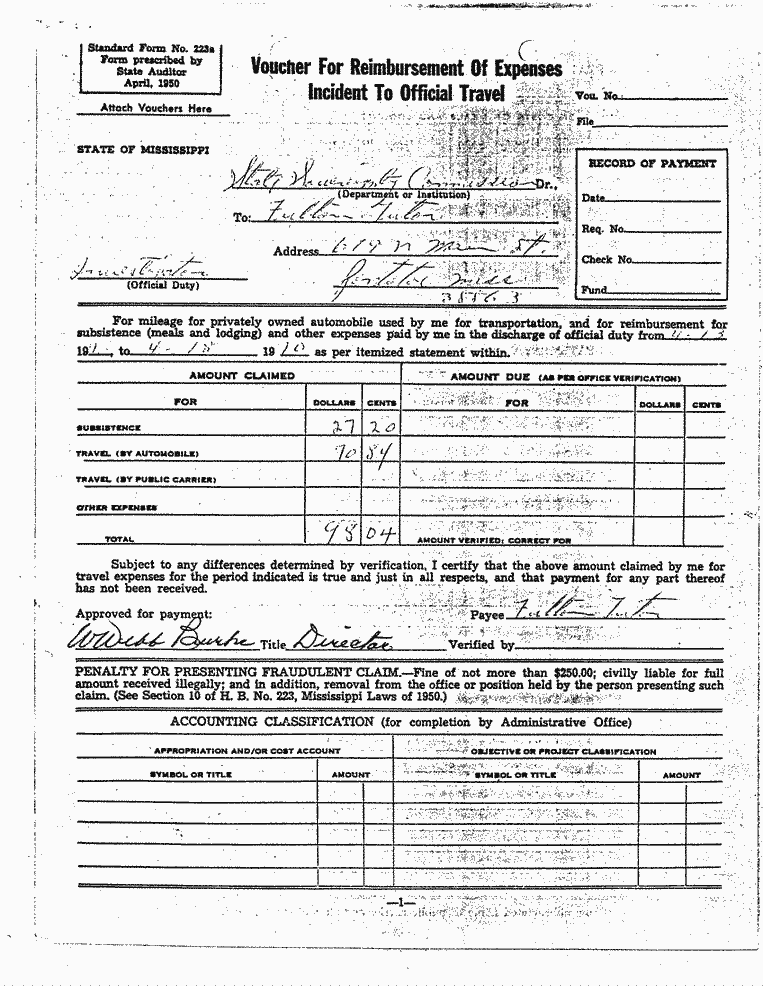 Standard Form No. 223a
Form prescribed by
State Auditor
April, 1950
Attach Vouchers Here
Voucher For Reimbursement Of Expenses
Incident To Official Travel
Vou. No.
File
STATE OF MISSISSIPPI
RECORD OF PAYMENT
Date
Req. No.
Check No.
Fund
State Sovereignty Commission Dr.,
(Department or Institution)
To: Fulton Tutor
Address 619 N Main St.
Miss
38863
Investigator
(Official Duty)
For mileage for privately owned automobile used by me for transportation, and for reimbursement for
subsistence (meals and lodging) and other expenses paid by me in the discharge of official duty from 4-13
19 , to 4-18 19 70 as per itemized statement within.
AMOUNT CLAIMED AMOUNT DUE (AS PER OFFICE VERIFICATION)
FOR DOLLARS CENTS FOR DOLLARS CENTS
SUBSISTENCE 27 20
TRAVEL (BY AUTOMOBILE) 70 84
TRAVEL (BY PUBLIC CARRIER)
OTHER EXPENSES
TOTAL 98 04 AMOUNT VERIFIED; CORRECT FOR
Subject to any differences determined by verification, I certify that the above amount claimed by me for
travel expenses for the period indicated is true and just in all respects, and that payment for any part thereof
has not been received.
Approved for payment: Payee Fulton Tutor
W Webb Burke Title Director Verified by
PENALTY FOR PRESENTING FRAUDULENT CLAIM.—Fine of not more than $250.00; civilly liable for full
amount received illegally; and in addition, removal from the office or position held by the person presenting such
claim. (See Section 10 of H. B. No. 223, Mississippi Laws of 1950.)
ACCOUNTING CLASSIFICATION (for completion by Administrative Office)
APPROPRIATION AND/OR COST ACCOUNT OBJECTIVE OR PROJECT CLASSIFICATION
SYMBOL OR TITLE AMOUNT SYMBOL OR TITLE AMOUNT
—1—